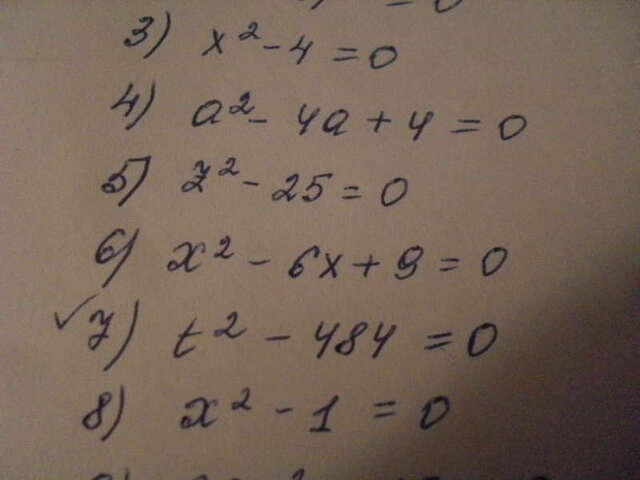 3) x² - 4 = 0
4) a² - 4a + 4 = 0
5) z² - 25 = 0
6) x² - 6x + 9 = 0
✓ 7) t² - 484 = 0
8) x² - 1 = 0